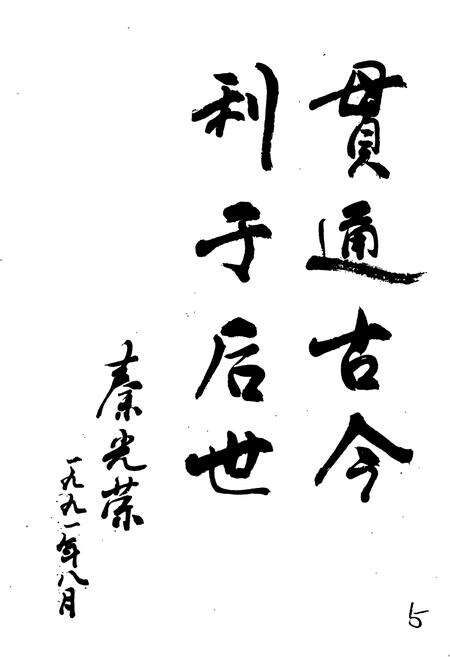 贯通古今
利于后世
秦光荣
一九九一年八月
5